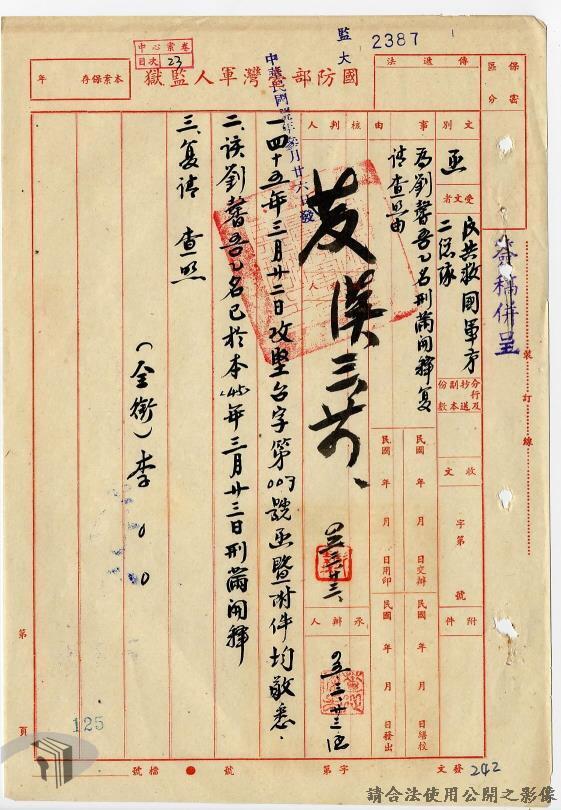 監大 2387
中心案卷
目次 23
國防部臺灣軍人監獄
本案保存 年
傳遞法
保密區分
中華民國 年 月廿六日發
文別
函
受文者
反共救國軍第二總隊
簽稿併呈
事由
為劉馨吾一名刑滿開釋復請查照由
分行及抄送副本份數
收文 字第 號
附件
民國 年 月 日交辦
民國 年 月 日用印
民國 年 月 日繕校
民國 年 月 日發出
核判人
發
承辦人
一、四十五年三月廿二日 台字第 號函暨附件均敬悉。
二、該劉馨吾一名已於本(45)年三月廿三日刑滿開釋
三、复請 查照
(全銜)李○○
裝訂線
第 頁
125
檔號 ● 號
發文 字第 242
請合法使用公開之影像